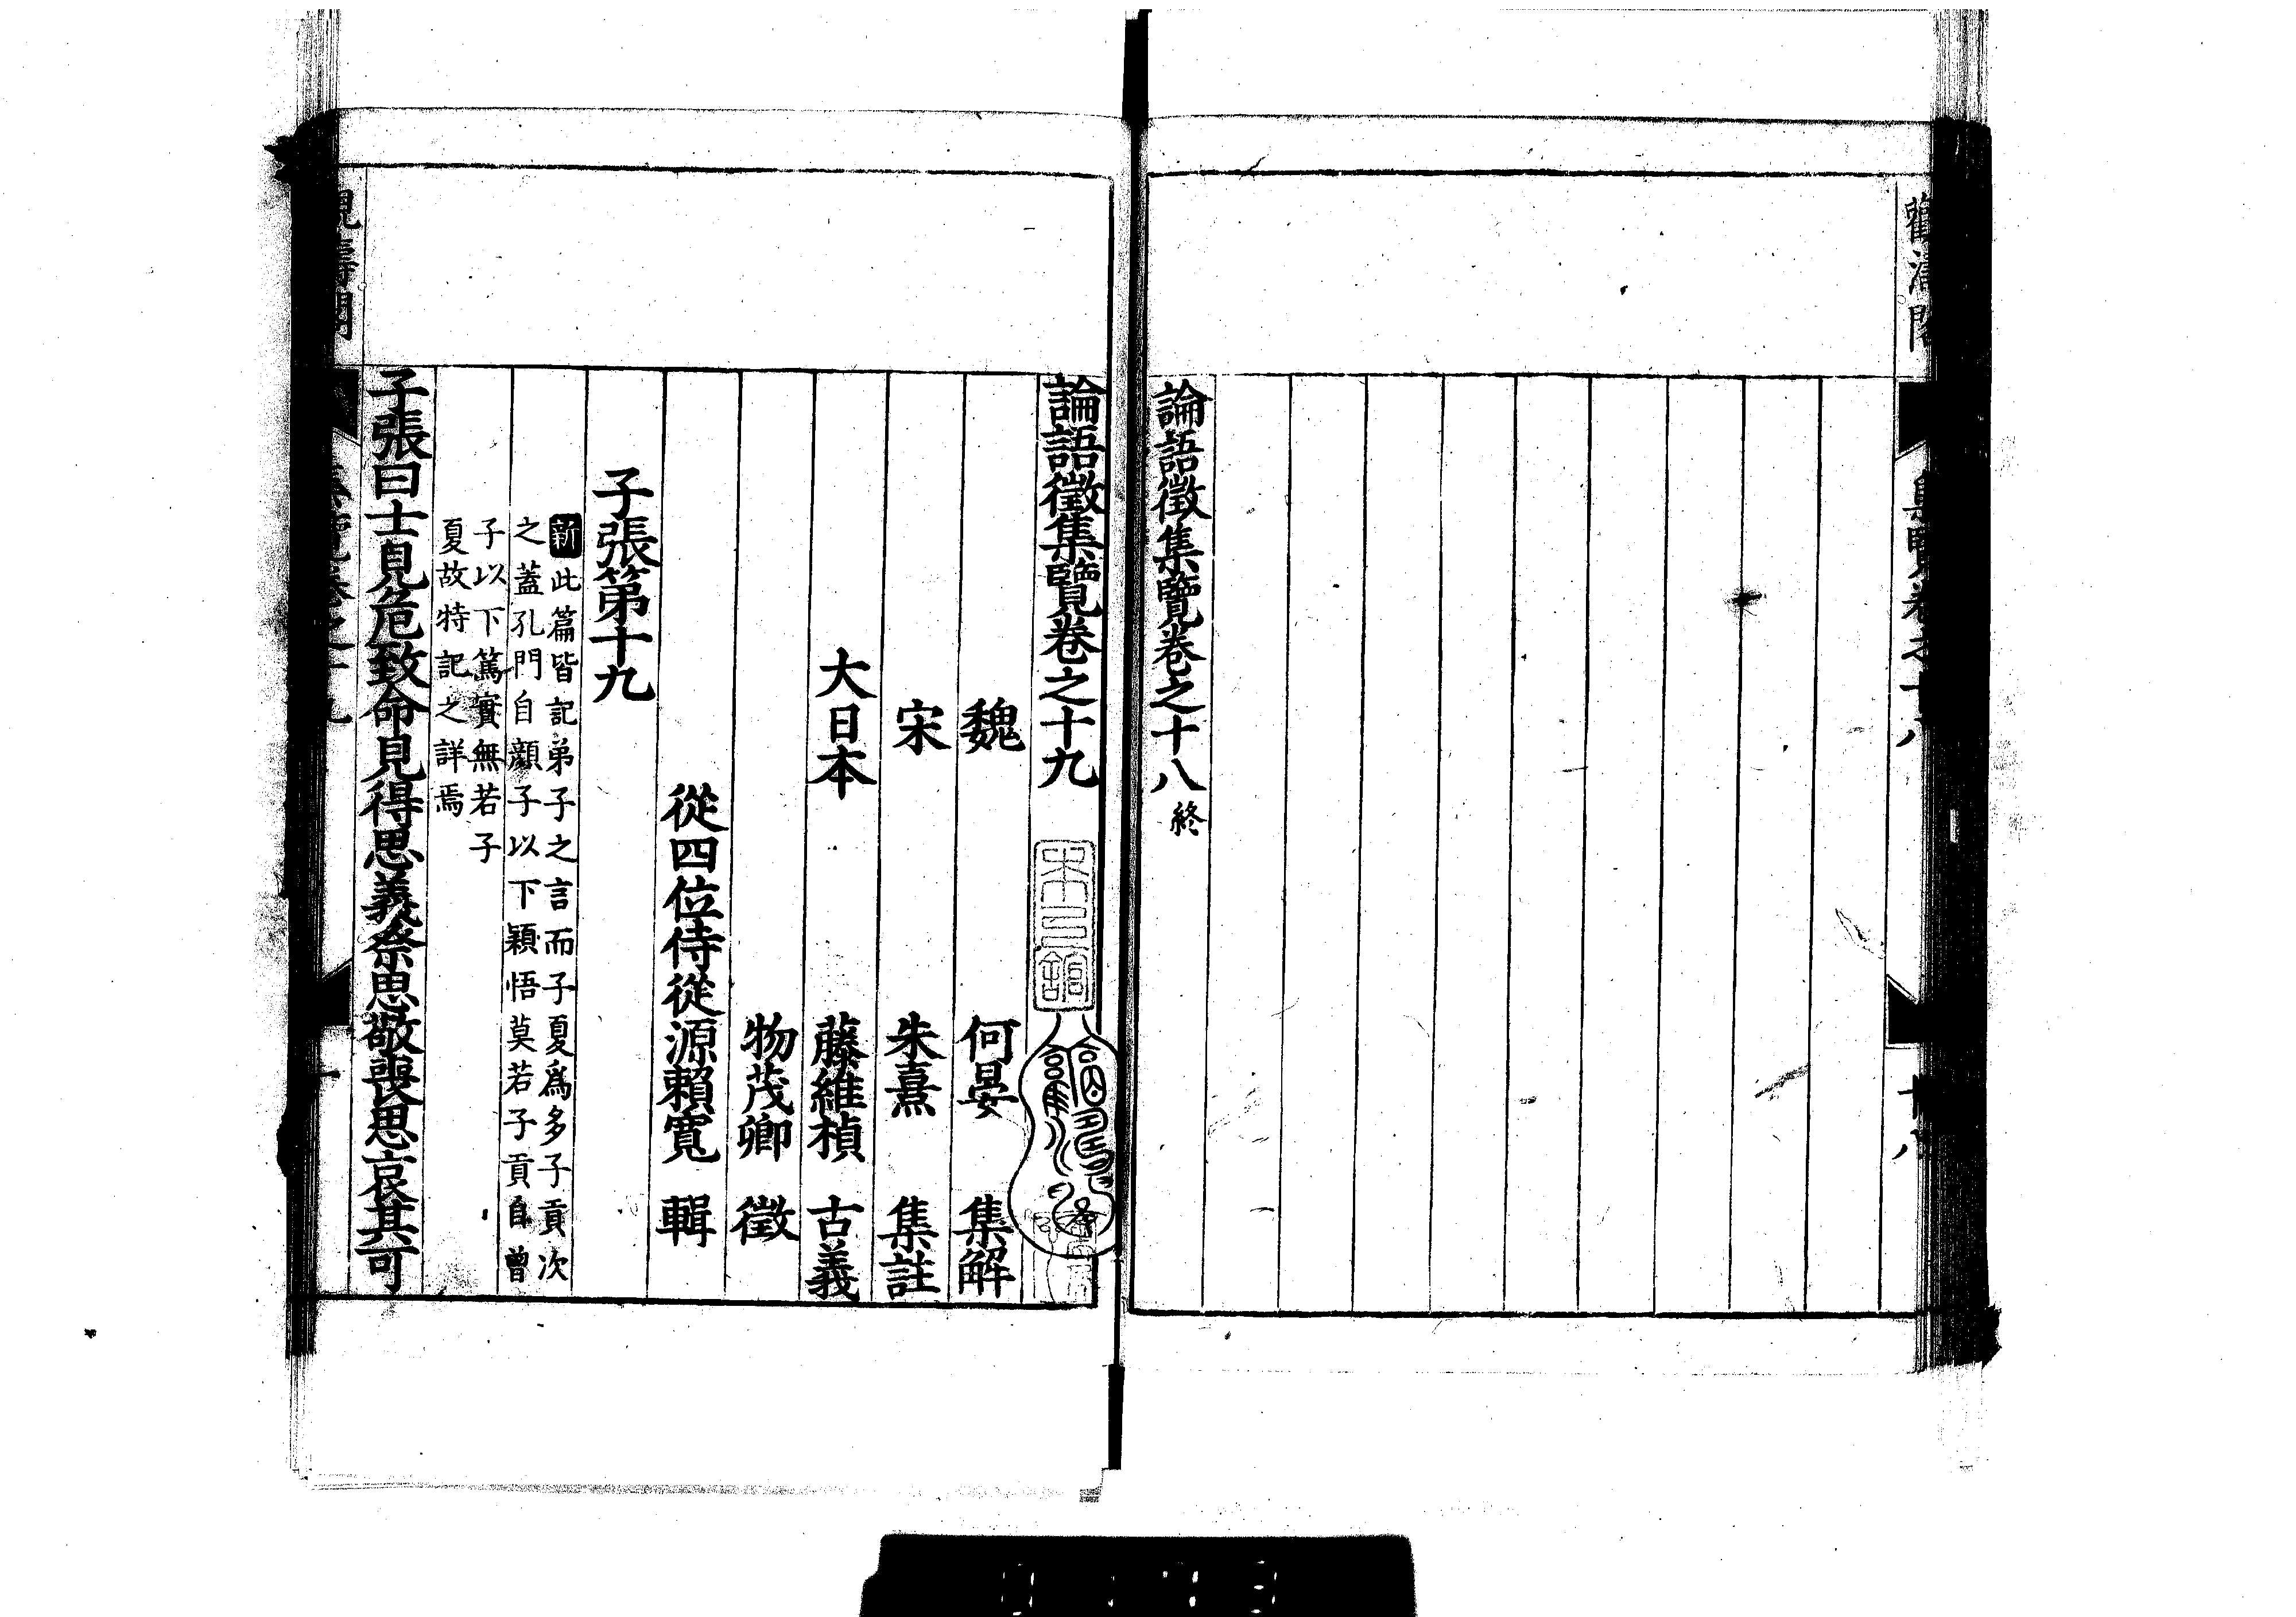 論語徵集覽卷之十八終
論語徵集覽卷之十九
魏　何晏　集解
宋　朱熹　集註
大日本　藤維楨　古義
物茂卿　徵
從四位侍從源賴寬　輯
子張第十九
新此篇皆記弟子之言而子夏爲多子貢次
之蓋孔門自顏子以下穎悟莫若子貢自曾
子以下篤實無若子
夏故特記之詳焉
子張曰士見危致命見得思義祭思敬喪思哀其可